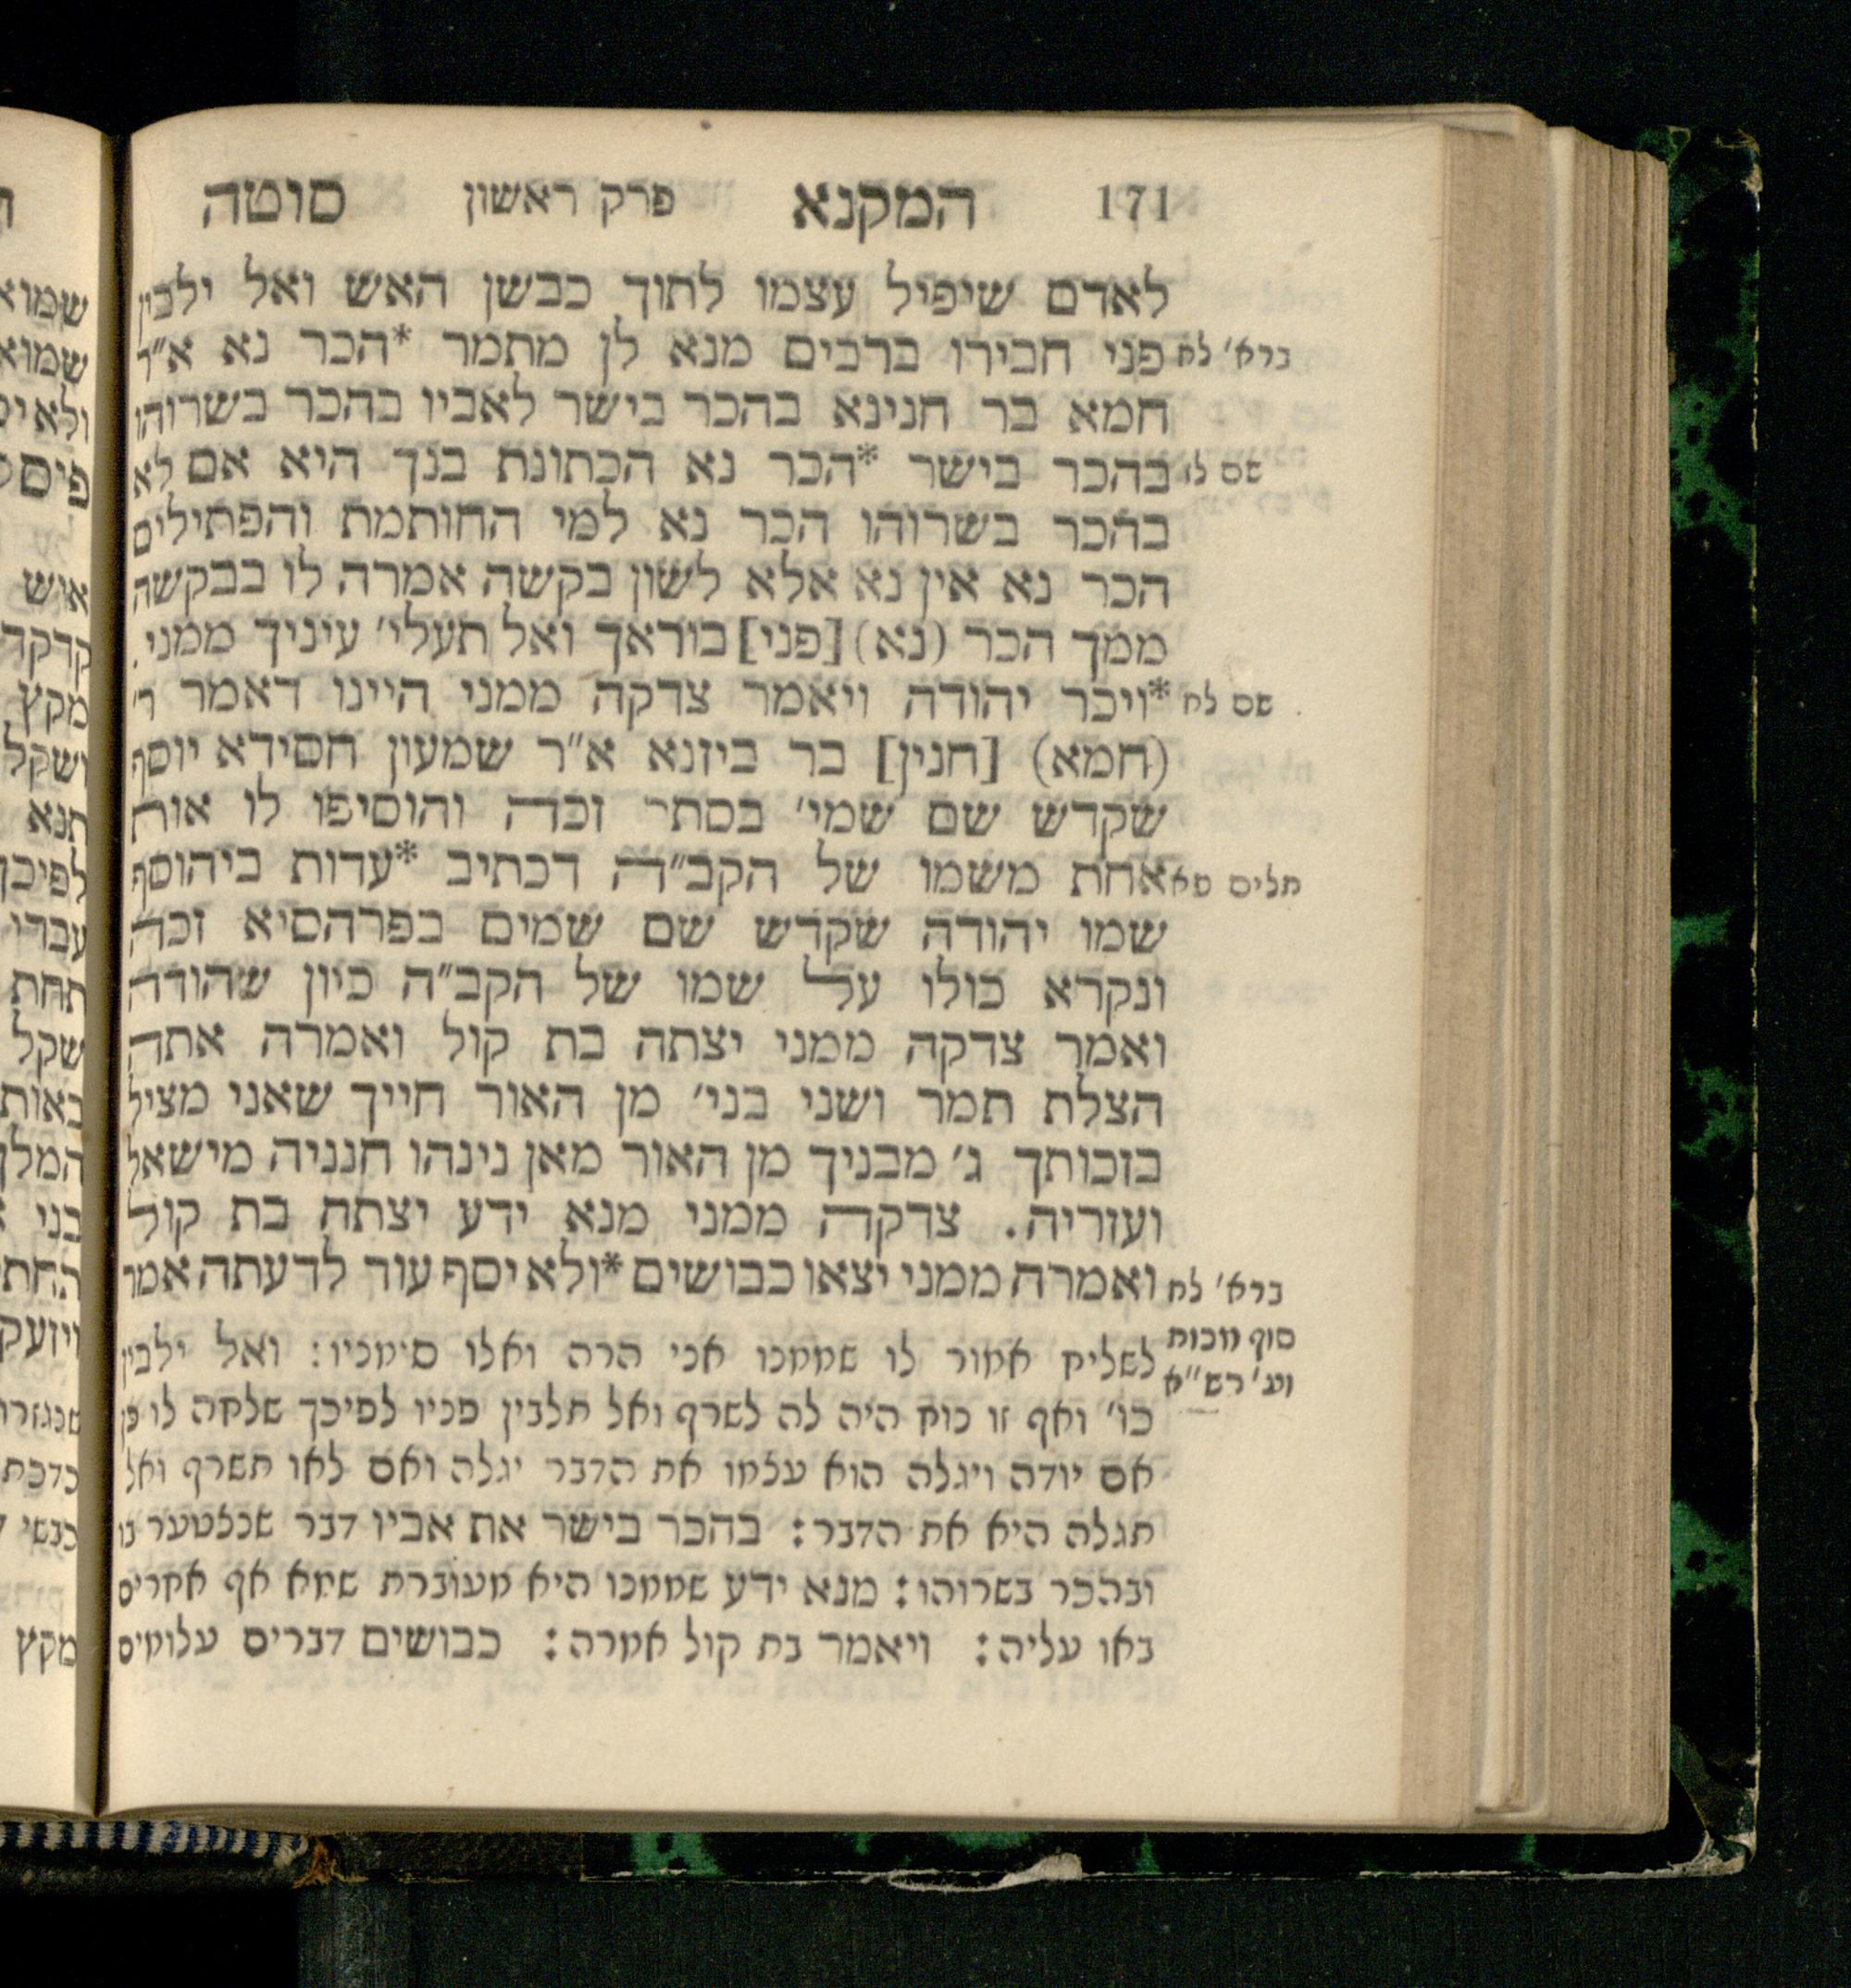 171 המקנא פרק ראשון סוטה
לאדם שיפיל עצמו לתוך כבשן האש ואל ילבין
ברא׳ לח פני חבירו ברבים מנא לן מתמר *הכר נא א״ר
חמא בר חנינא בהכר בישר לאביו בהכר בשרוהו
שם לז בהכר בישר *הכר נא הכתונת בנך היא אם לא
בהכר בשרוהו הכר נא למי החותמת והפתילים
הכר נא אין נא אלא לשון בקשה אמרה לו בבקשה
ממך הכר (נא) [פני] בוראך ואל תעלי׳ עיניך ממני.
שם לח *ויכר יהודה ויאמר צדקה ממני היינו דאמר ר׳
(חמא) [חנין] בר ביזנא א״ר שמעון חסידא יוסף
שקדש שם שמי׳ בסתר זכה והוסיפו לו אות
תלים פא אחת משמו של הקב״ה דכתיב *עדות ביהוסף
שמו יהודה שקדש שם שמים בפרהסיא זכה
ונקרא כולו על שמו של הקב״ה כיון שהודה
ואמר צדקה ממני יצתה בת קול ואמרה אתה
הצלת תמר ושני בני׳ מן האור חייך שאני מציל
בזכותך ג׳ מבניך מן האור מאן נינהו חנניה מישאל
ועזריה. צדקה ממני מנא ידע יצתה בת קול
ברא׳ לח ואמרה ממני יצאו כבושים *ולא יסף עוד לדעתה אמר
סוף מכות
וע׳ רש״א
לשליח אמור לו שממנו אני הרה ואלו סימניו: ואל ילבין
כו׳ ואף זו נוח היה לה לשרף ואל תלבין פניו לפיכך שלחה לו כן
אם יודה ויגלה הוא עצמו את הדבר יגלה ואם לאו תשרף ואל
תגלה היא את הדבר: בהכר בישר את אביו דבר שנצטער בו
ובהכר בשרוהו: מנא ידע שממנו היא מעוברת שמא אף אחרים
באו עליה: ויאמר בת קול אמרה: כבושים דברים עלומים
שמוא
שמוא
איש
מקץ
ושקל
תנא
לפיכך
עברו
תחת
שקל
באות
המלך
בני
החת
ויזעק
מקץ